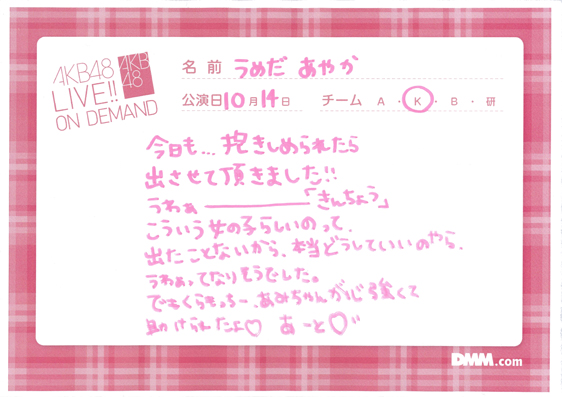 AKB48
LIVE!!
ON DEMAND
AKB
48
名前 うめだ あやか
公演日10月14日 チーム A・K・B・研
今日も…抱きしめられたら
出させて頂きました!!
うわぁ―――「きんちょう」
こういう女の子らしいのって、
出たことないから、本当どうしていいのやら、
うわぁってなりそうでした。
でもくらもっちー、あみちゃんが心強くて
助けられたよ♡ あーと♡"
DMM.com